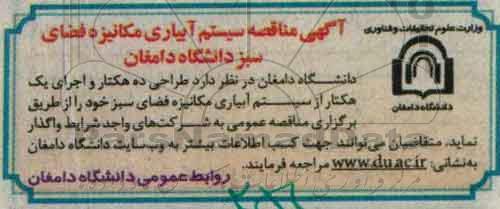 آگهی مناقصه سیستم آبیاری مکانیزه فضای
سبز دانشگاه دامغان
وزارت علوم تحقیقات و فناوری
دانشگاه دامغان
دانشگاه دامغان در نظر دارد طراحی ده هکتار و اجرای یک
هکتار از سیستم آبیاری مکانیزه فضای سبز خود را از طریق
برگزاری مناقصه عمومی به شرکت‌های واجد شرایط واگذار
نماید، متقاضیان می‌توانند جهت کسب اطلاعات بیشتر به وب‌سایت دانشگاه دامغان
به‌نشانی: www.du.ac.ir مراجعه فرمایند.
روابط عمومی دانشگاه دامغان